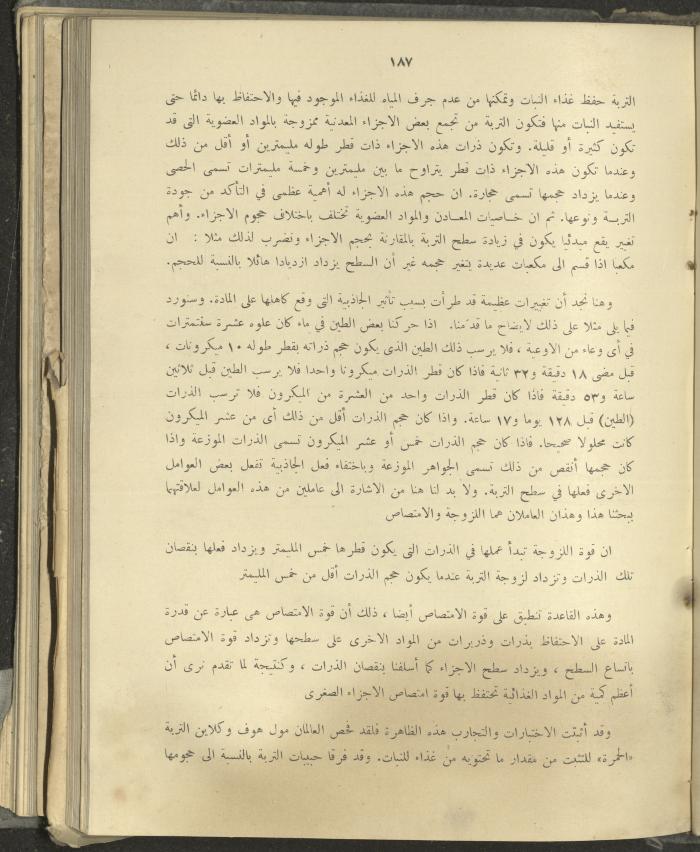 ١٨٧
التربة حفظ غذاء النبات وتمكنها من عدم جرف المياه للغذاء الموجود فيها والاحتفاظ بها دائما حتى
يستفيد النبات منها فتكون التربة من تجمع بعض الاجزاء المعدنية ممزوجة بالمواد العضوية التى قد
تكون كثيرة أو قليلة. وتكون ذرات هذه الاجزاء ذات قطر طوله مليمترين أو أقل من ذلك
وعندما تكون هذه الاجزاء ذات قطر يتراوح ما بين مليمترين وخمسة مليمترات تسمى الحصى
وعندما يزداد حجمها تسمى حجارة. ان حجم هذه الاجزاء له أهمية عظمى في التأكد من جودة
التربة ونوعها. ثم ان خاصيات المعادن والمواد العضوية تختلف باختلاف حجوم الاجزاء. وأهم
تغيير يقع مبدئيا يكون في زيادة سطح التربة بالمقارنة بحجم الاجزاء ونضرب لذلك مثلا : ان
مكعبا اذا قسم الى مكعبات عديدة يتغير حجمه غير أن السطح يزداد ازديادا هائلا بالنسبة للحجم.
وهنا نجد أن تغييرات عظيمة قد طرأت بسبب تأثير الجاذبية التى وقع كاهلها على المادة. وسنورد
فيما يلى مثلا على ذلك لايضاح ما قدمنا. اذا حركنا بعض الطين في ماء كان علوه عشرة سنتمترات
في أى وعاء من الاوعية ، فلا يرسب ذلك الطين الذى يكون حجم ذراته بقطر طوله ١٠ ميكرونات ،
قبل مضى ١٨ دقيقة و٣٢ ثانية فاذا كان قطر الذرات ميكرونا واحدا فلا يرسب الطين قبل ثلاثين
ساعة و٥٣ دقيقة فاذا كان قطر الذرات واحد من العشرة من الميكرون فلا ترسب الذرات
(الطين) قبل ١٢٨ يوما و١٧ ساعة. واذا كان حجم الذرات أقل من ذلك أى من عشر الميكرون
كانت محلولا صحيحا. فاذا كان حجم الذرات خمس أو عشر الميكرون تسمى الذرات الموزعة واذا
كان حجمها أنقص من ذلك تسمى الجواهر الموزعة وباختفاء فعل الجاذبية تفعل بعض العوامل
الاخرى فعلها في سطح التربة. ولا بد لنا هنا من الاشارة الى عاملين من هذه العوامل لعلاقتهما
ببحثنا هذا وهذان العاملان هما اللزوجة والامتصاص
ان قوة اللزوجة تبدأ عملها في الذرات التى يكون قطرها خمس المليمتر ويزداد فعلها بنقصان
تلك الذرات وتزداد لزوجة التربة عندما يكون حجم الذرات أقل من خمس المليمتر
وهذه القاعدة تنطبق على قوة الامتصاص أيضا ، ذلك أن قوة الامتصاص هى عبارة عن قدرة
المادة على الاحتفاظ بذرات وذريرات من المواد الاخرى على سطحها وتزداد قوة الامتصاص
باتساع السطح ، ويزداد سطح الاجزاء كما أسلفنا بنقصان الذرات ، وكنتيجة لما تقدم نرى أن
أعظم كمية من المواد الغذائية تحتفظ بها قوة امتصاص الاجزاء الصغرى
وقد أثبتت الاختبارات والتجارب هذه الظاهرة فلقد فحص العالمان مول هوف وكلاين التربة
«الحمرة» للتثبت من مقدار ما تحتويه من غذاء للنبات. وقد فرقا حبيبات التربة بالنسبة الى حجومها